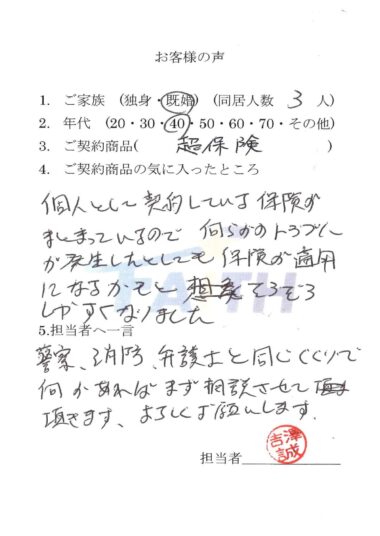 お客様の声
1. ご家族 (独身・既婚) (同居人数 3 人)
2. 年代 (20・30・40・50・60・70・その他)
3. ご契約商品( 超保険 )
4. ご契約商品の気に入ったところ
個人として契約している保険が
まとまっているので 何らかのトラブル
が発生したとしても 保険が適用
になるかもと 想
しやすくなりました
FAITH
5.担当者へ一言
警察、消防、弁護士と同じくくりで
何かあればまず相談させて
頂きます、よろしくお願いします.
担当者
吉澤
誠